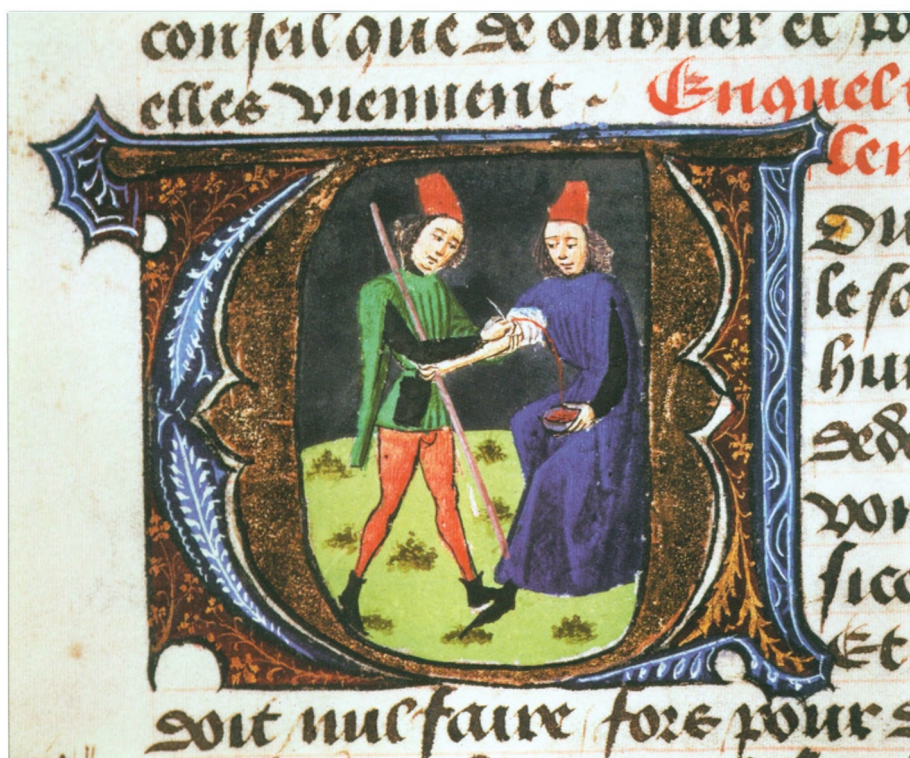 conseil que de oublier et po
elles viennent . Enquel
len
Qu
le so
hu
ded
von
sico
Et
doit nul faire fors pour